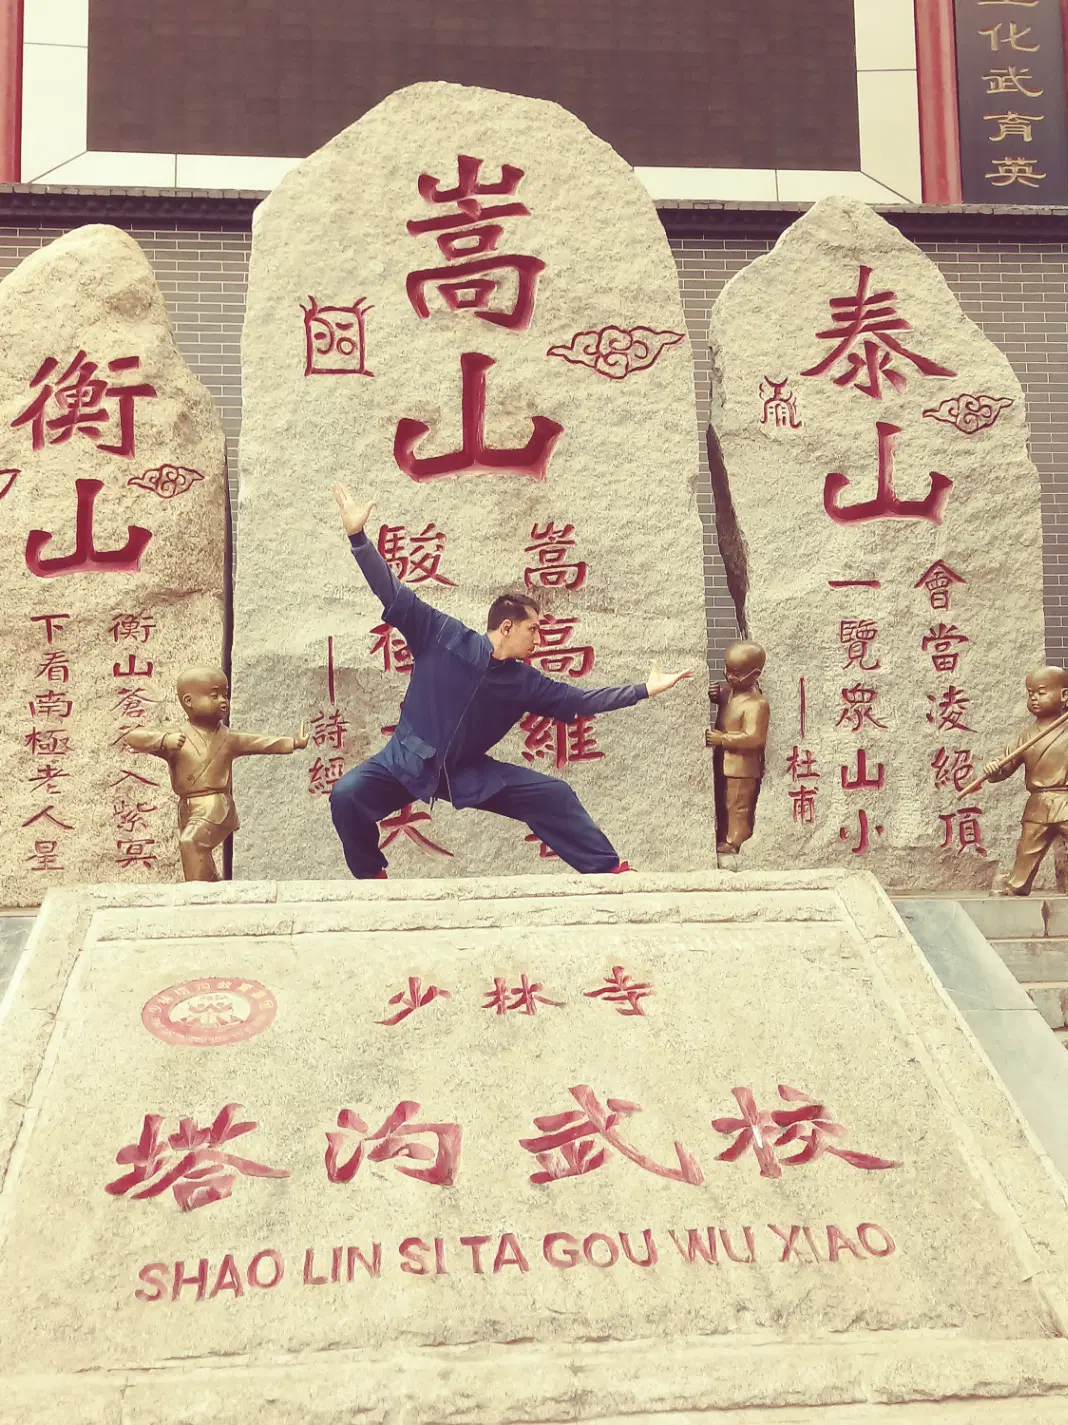 化武育英
嵩山
嵩高
駿
詩經
泰山
會當凌絕頂
一覽眾山小
杜甫
衡山
衡山蒼蒼入紫冥
下看南極老人星
少林寺
塔沟武校
SHAO LIN SI TA GOU WU XIAO